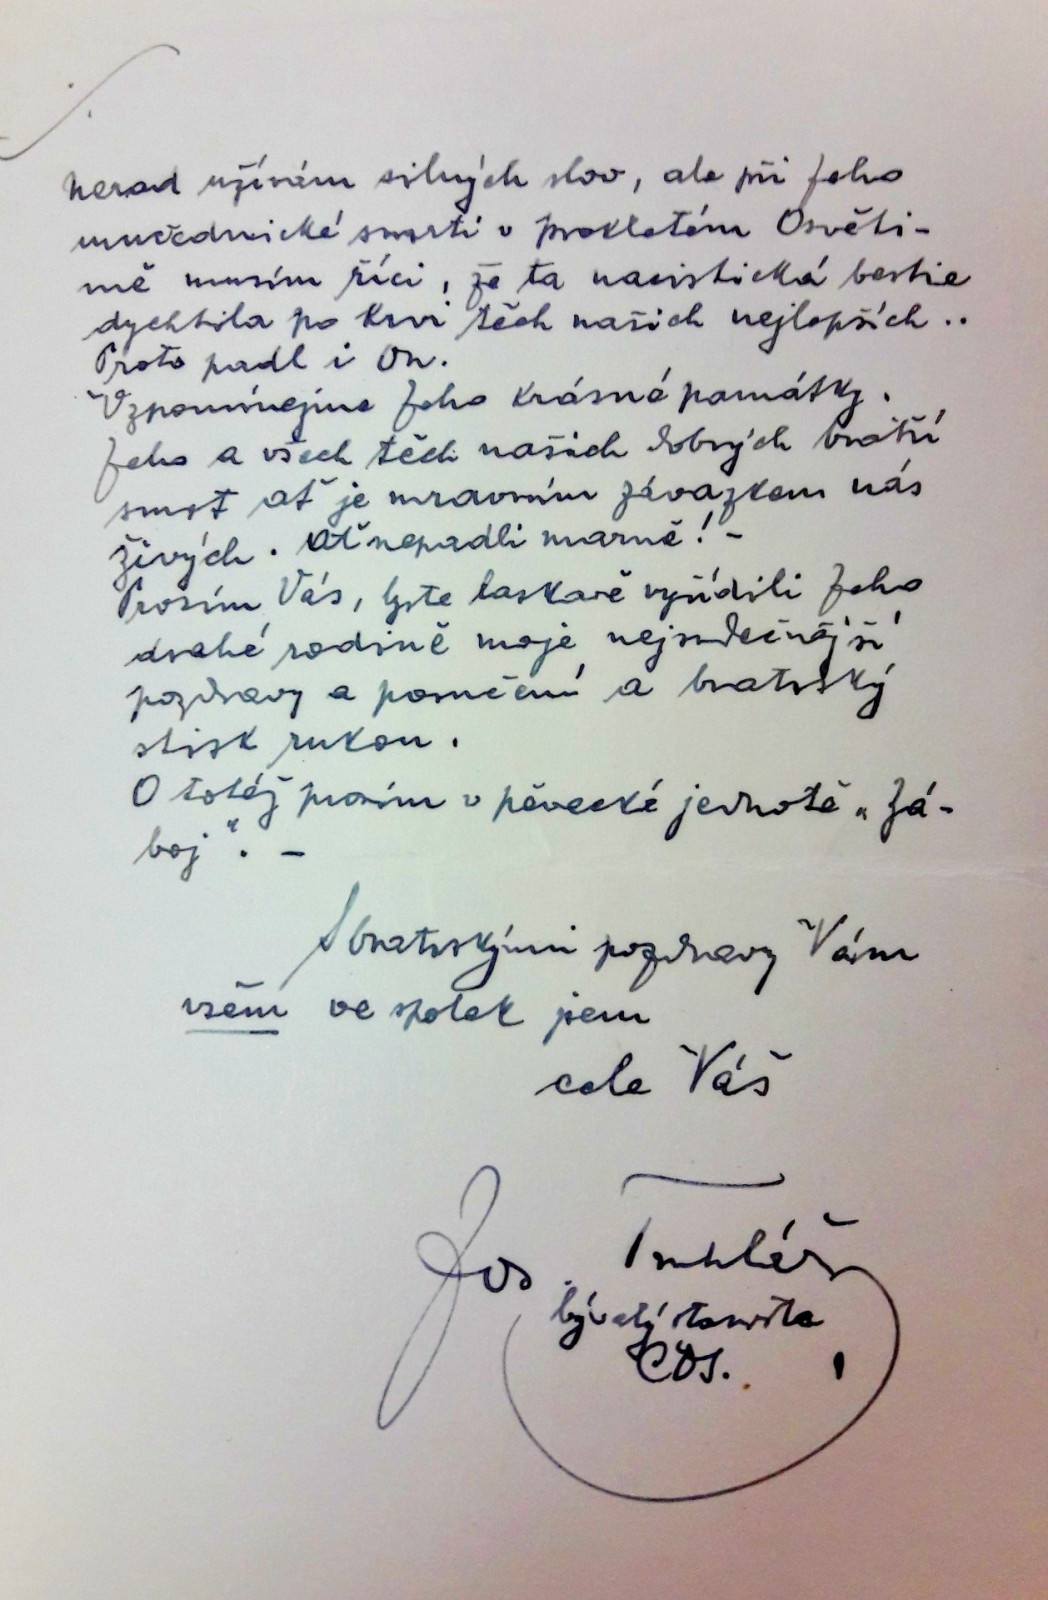 nerad užívám silných slov, ale při Jeho
mučednické smrti v prokletém Osvěti-
mě musím říci, že ta nacistická bestie
dychtila po krvi těch našich nejlepších ..
Proto padl i On.
Vzpomínejme Jeho krásné památky.
Jeho a všech těch našich dobrých bratří
smrt ať je mravním závazkem nás
živých. Ať nepadli marně! -
Prosím Vás, byste laskavě vyřídili Jeho
drahé rodině moje nejsrdečnější
pozdravy a poručení a bratrský
stisk rukou.
O totéž prosím v pěvecké jednotě „Zá-
boj“. -
S bratrskými pozdravy Vám
všem ve spolek jsem
cele Váš
Jos. Truhlář
bývalý starosta
ČOS.